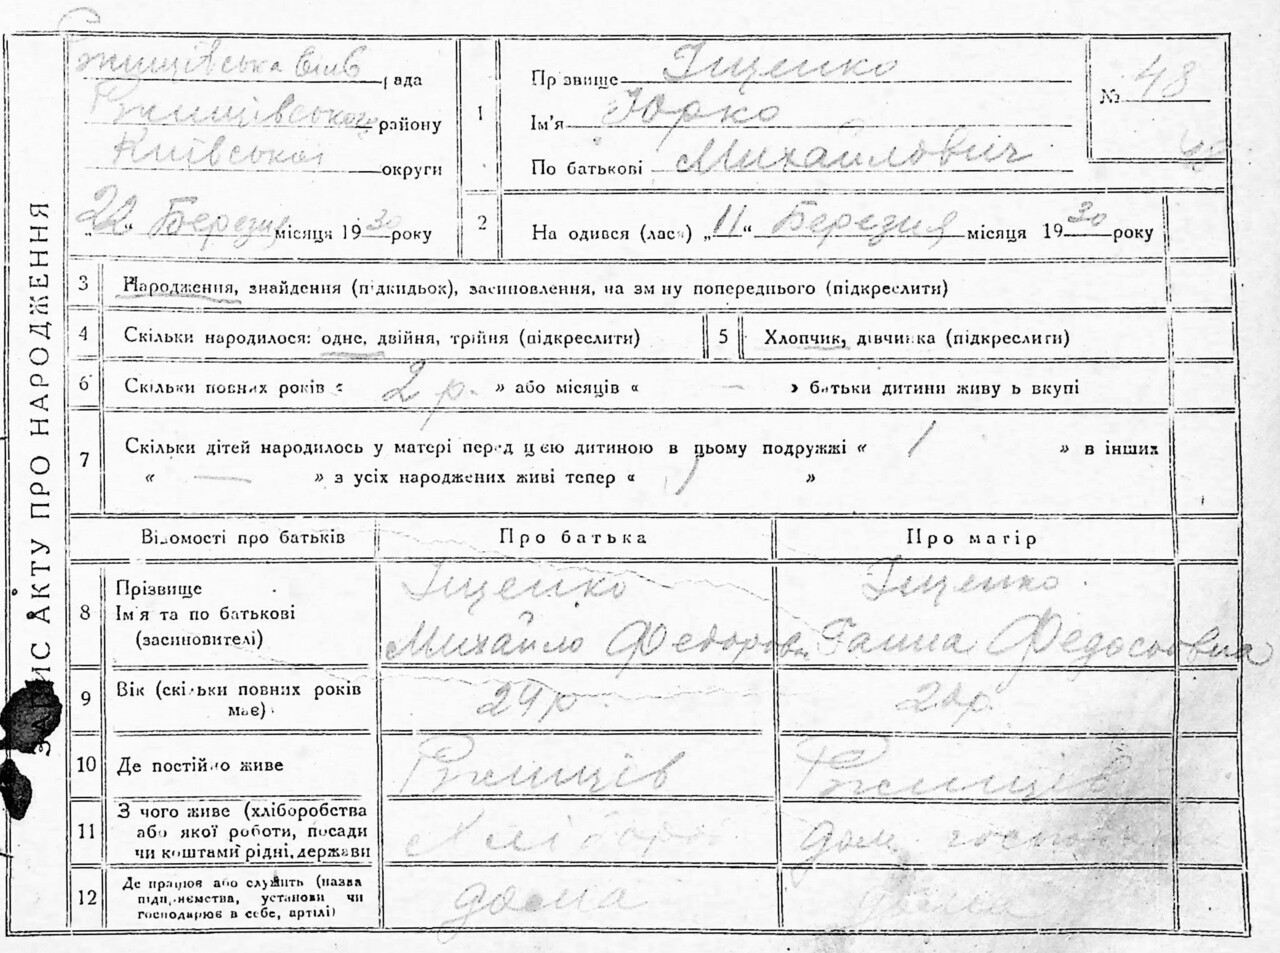 ЗАПИС АКТУ ПРО НАРОДЖЕННЯ
Ржищівська рада
Ржищівського району
Київської округи
„22“ Березня місяця 1930 року
1
Прізвище Іщенко
Ім'я Юрко
По батькові Михайлович
№ 48
48
2
На одився (лася) „11“ Березня місяця 1930 року
3 Народження, знайдення (підкидьок), засиновлення, на зміну попереднього (підкреслити)
4 Скільки народилося: одне, двійня, трійня (підкреслити)
5 Хлопчик, дівчинка (підкреслити)
6 Скільки повних років « 2 р. » або місяців « — » батьки дитини живуть вкупі
7 Скільки дітей народилось у матері перед цією дитиною в цьому подружжі « 1 » в інших
« — » з усіх народжених живі тепер « 1 »
Відомості про батьків Про батька Про матір
8 Прізвище Іщенко Іщенко
Ім'я та по батькові
(засиновителі) Михайло Федоров. Ганна Федосіовна
9 Вік (скільки повних років
має) 24 р. 20 р.
10 Де постійно живе Ржищів Ржищів
11 З чого живе (хліборобства
або якої роботи, посади
чи коштами рідні, держави Хлібороб дом.
12 Де працює або служить (назва
підприємства, установи чи
господарює в себе, артілі) дома дома